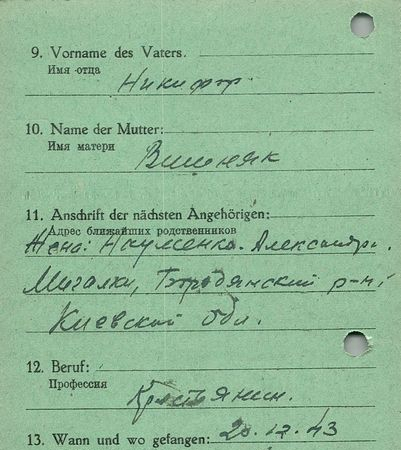 9. Vorname des Vaters.
Имя отца
Никифор
10. Name der Mutter:
Имя матери
Вишняк
11. Anschrift der nächsten Angehörigen:
Адрес ближайших родственников
Жена: Науменко Александра.
Мигалки, Бородянский р-н
Киевской обл.
12. Beruf:
Профессия
Крестянин.
13. Wann und wo gefangen: 20.12.43